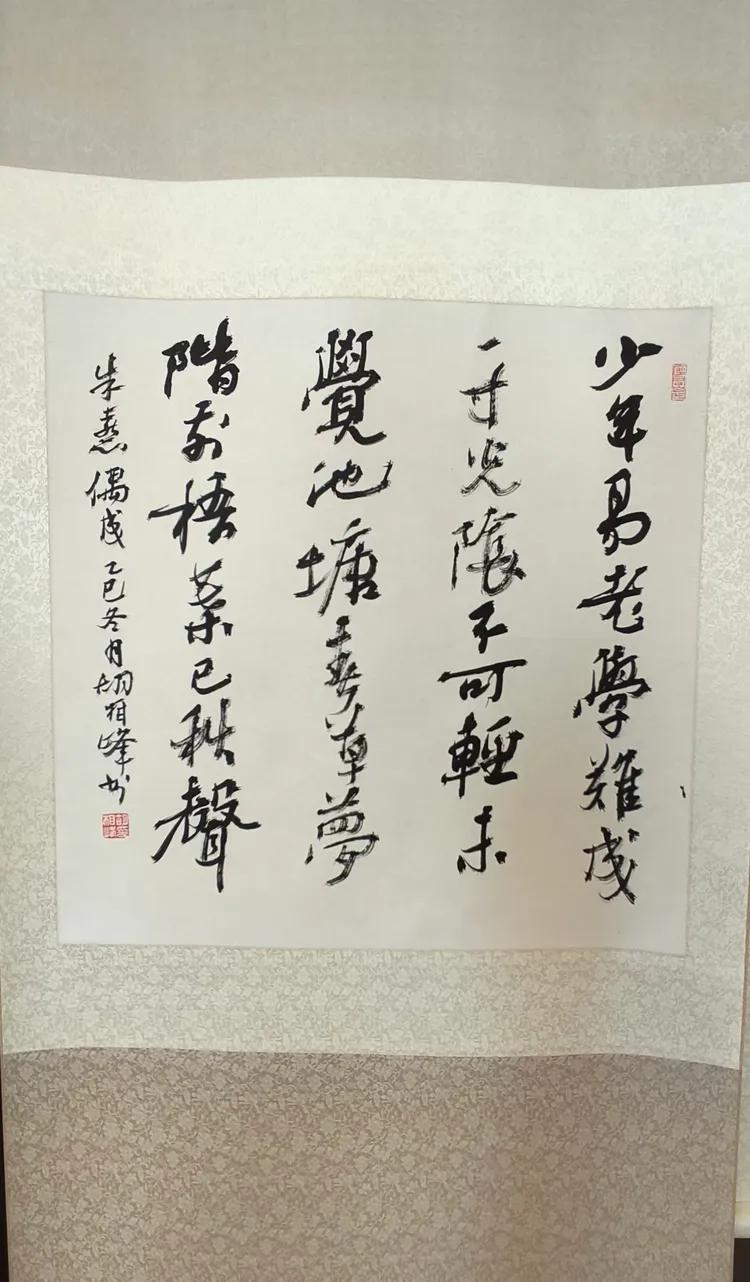 少年易老學難成
一寸光陰不可輕未
覺池塘春草夢
階前梧葉已秋聲
朱熹偶成乙巳冬月胡相峰书